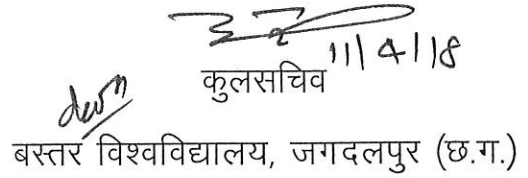 11/4/18
कुलसचिव
बस्तर विश्वविद्यालय, जगदलपुर (छ.ग.)